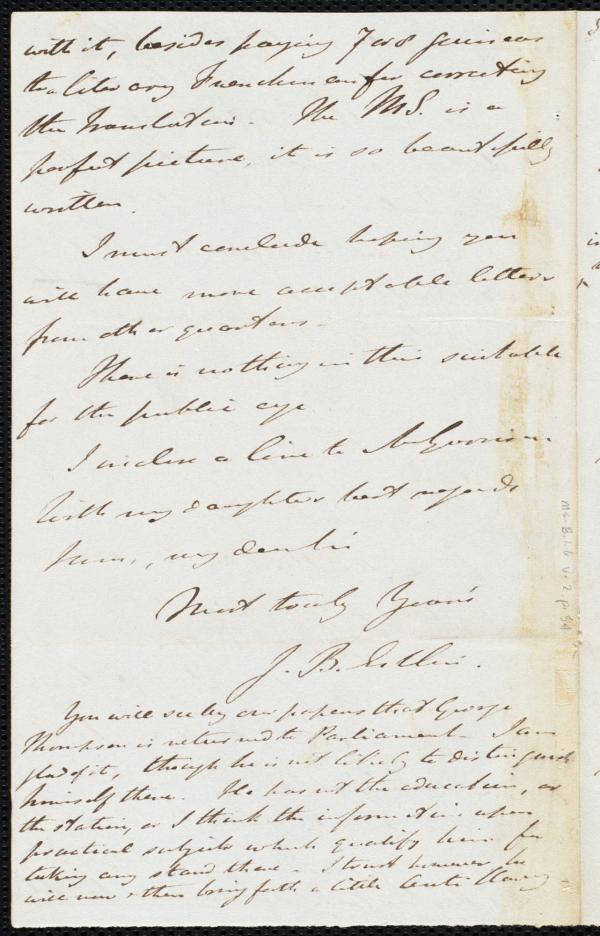 with it, besides paying 7 or 8 guineas
to a literary Frenchman for correcting
the translation. The MS. is a
perfect picture, it is so beautifully
written.
I must conclude hoping you
will have more acceptable letters
from other quarters.
There is nothing in this suitable
for the public eye
I inclose a line to Mr Garrison
With my daughter's best regards
I am, my dear Sir
Most truly Yours
J. B. Estlin.
You will see by our papers that George
Thompson is returned to Parliament. I am
glad of it, though he is not likely to distinguish
himself there. He has not the education, or
the station, or I think the information upon
practical subjects which qualify him for
taking any stand there. I trust however he
will now & then bring forth a little Anti Slavery
Ms. B.1.6 v. 2 p. 54